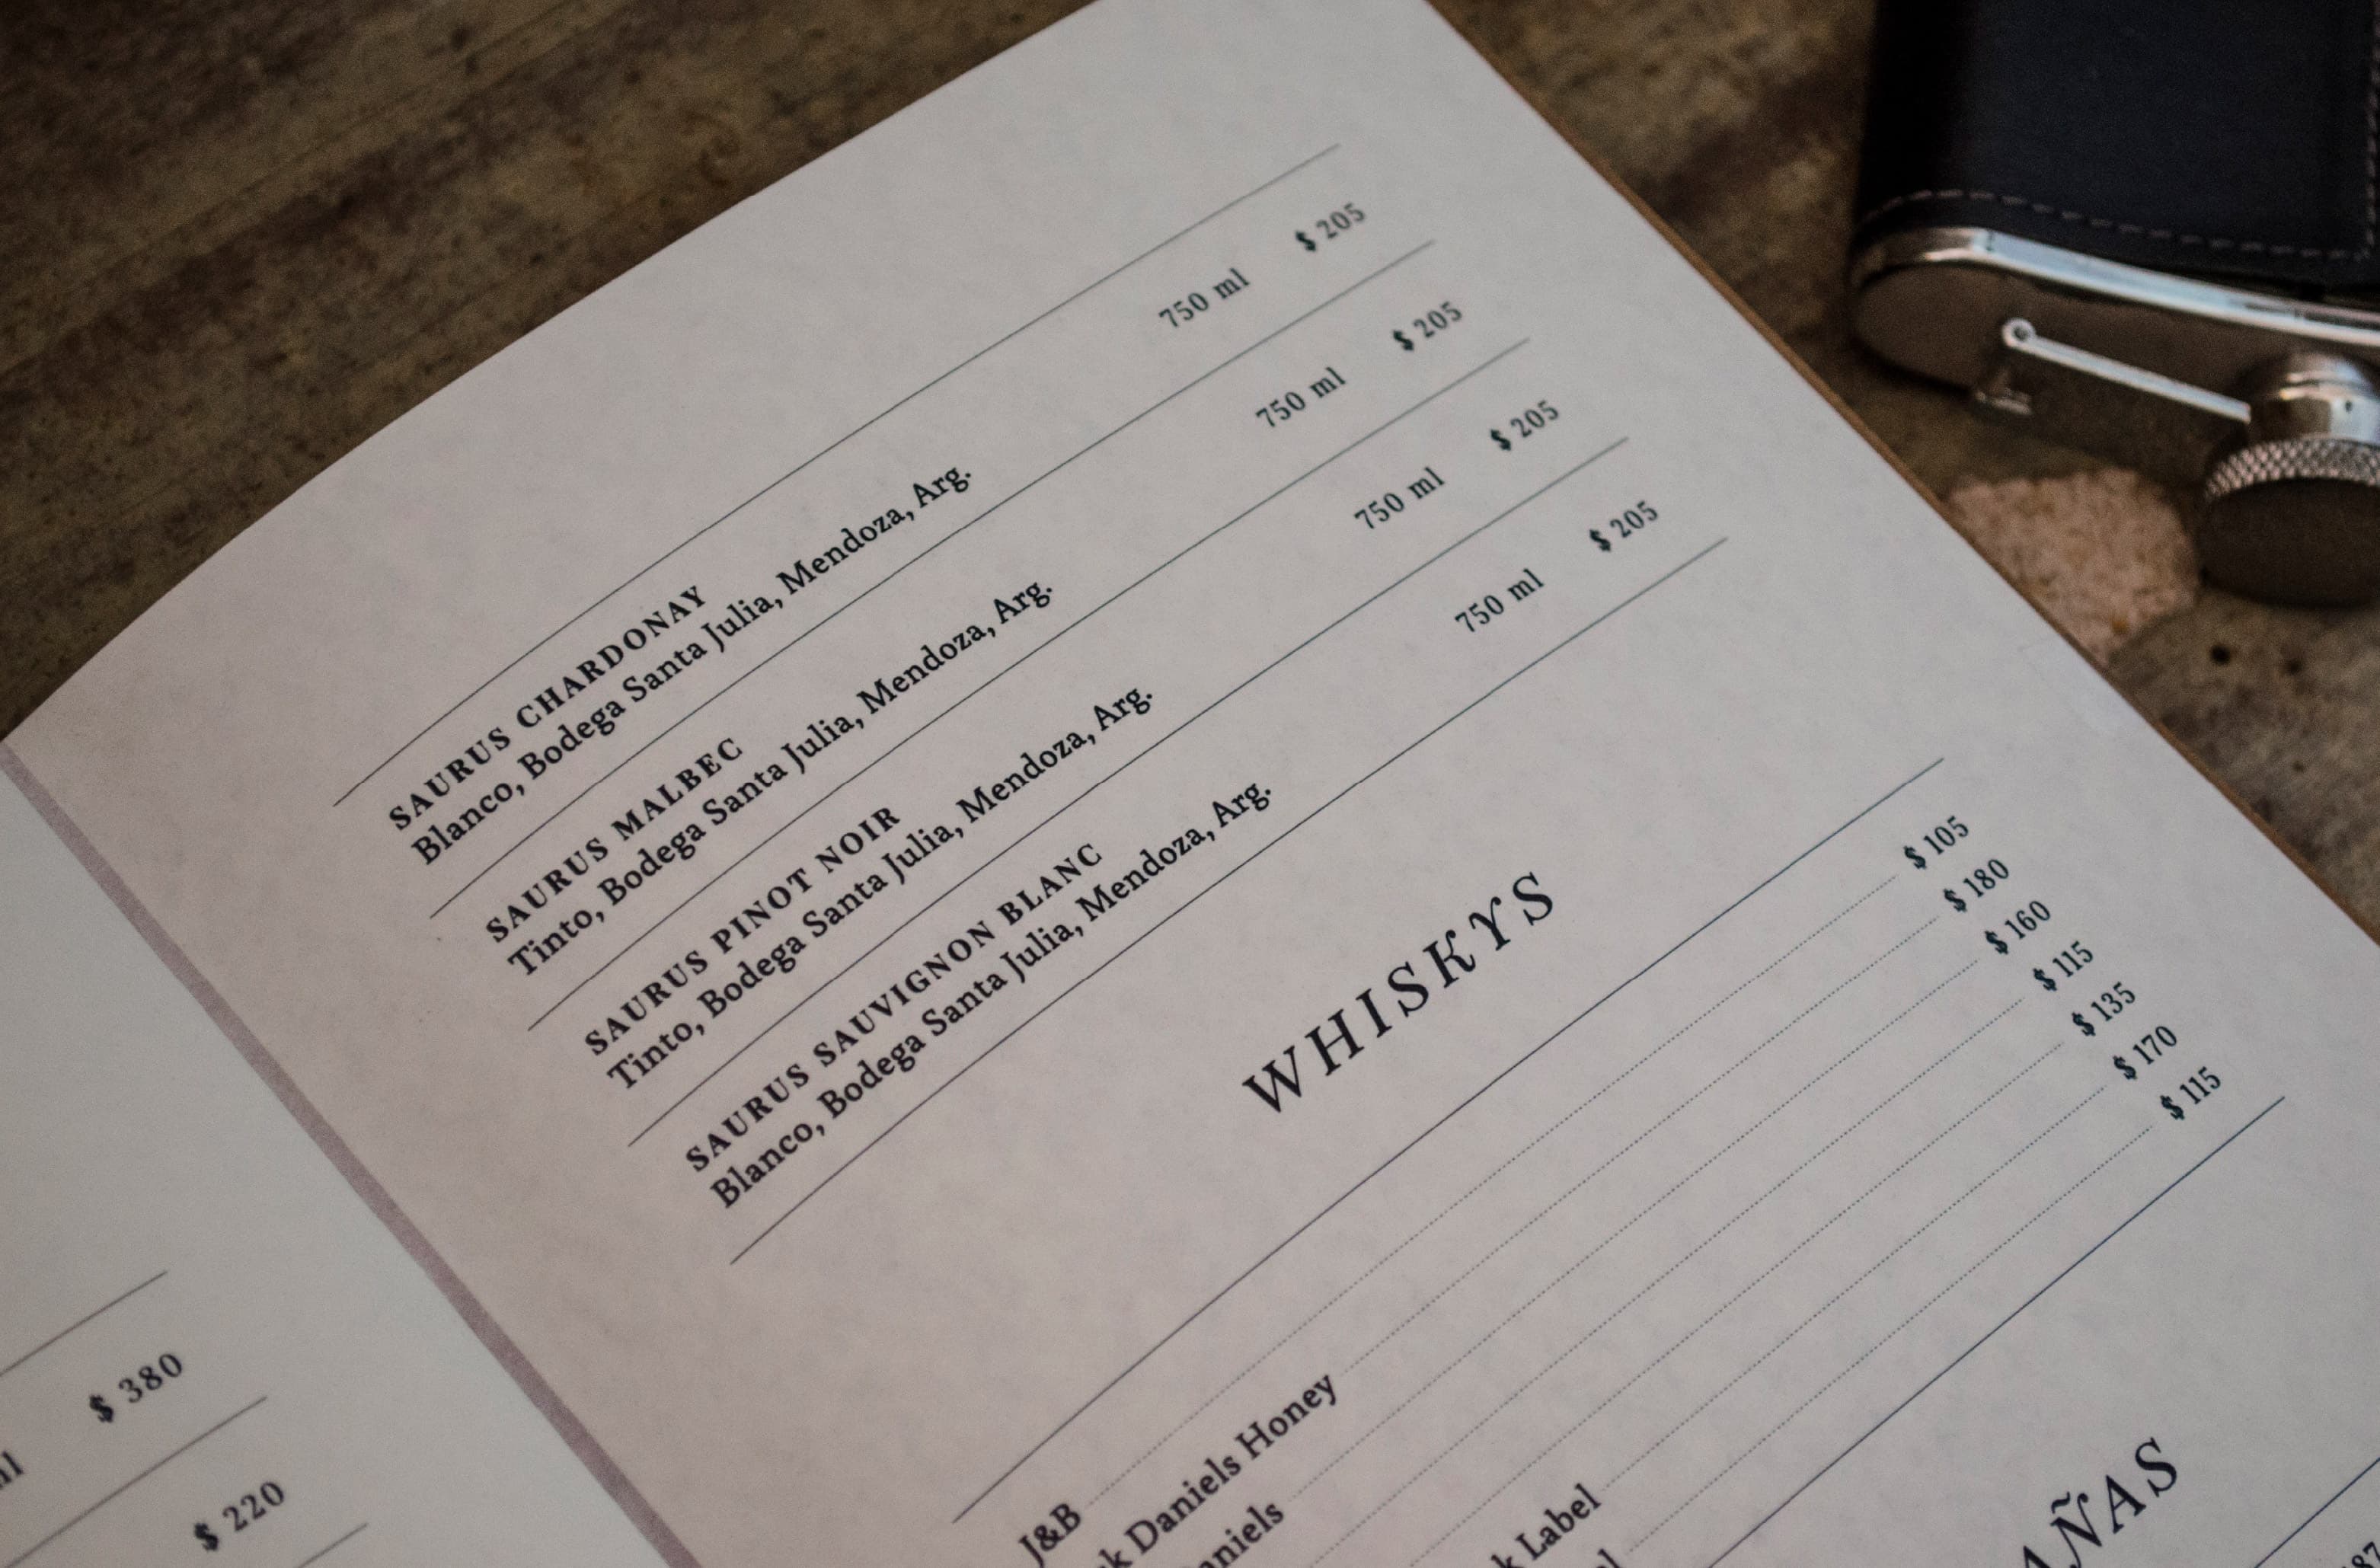 $ 380
$ 220
SAURUS CHARDONAY
Blanco, Bodega Santa Julia, Mendoza, Arg. 750 ml $ 205
SAURUS MALBEC
Tinto, Bodega Santa Julia, Mendoza, Arg. 750 ml $ 205
SAURUS PINOT NOIR
Tinto, Bodega Santa Julia, Mendoza, Arg. 750 ml $ 205
SAURUS SAUVIGNON BLANC
Blanco, Bodega Santa Julia, Mendoza, Arg. 750 ml $ 205
WHISKYS
J&B $ 105
Daniels Honey $ 180
$ 160
$ 115
$ 135
Label $ 170
$ 115